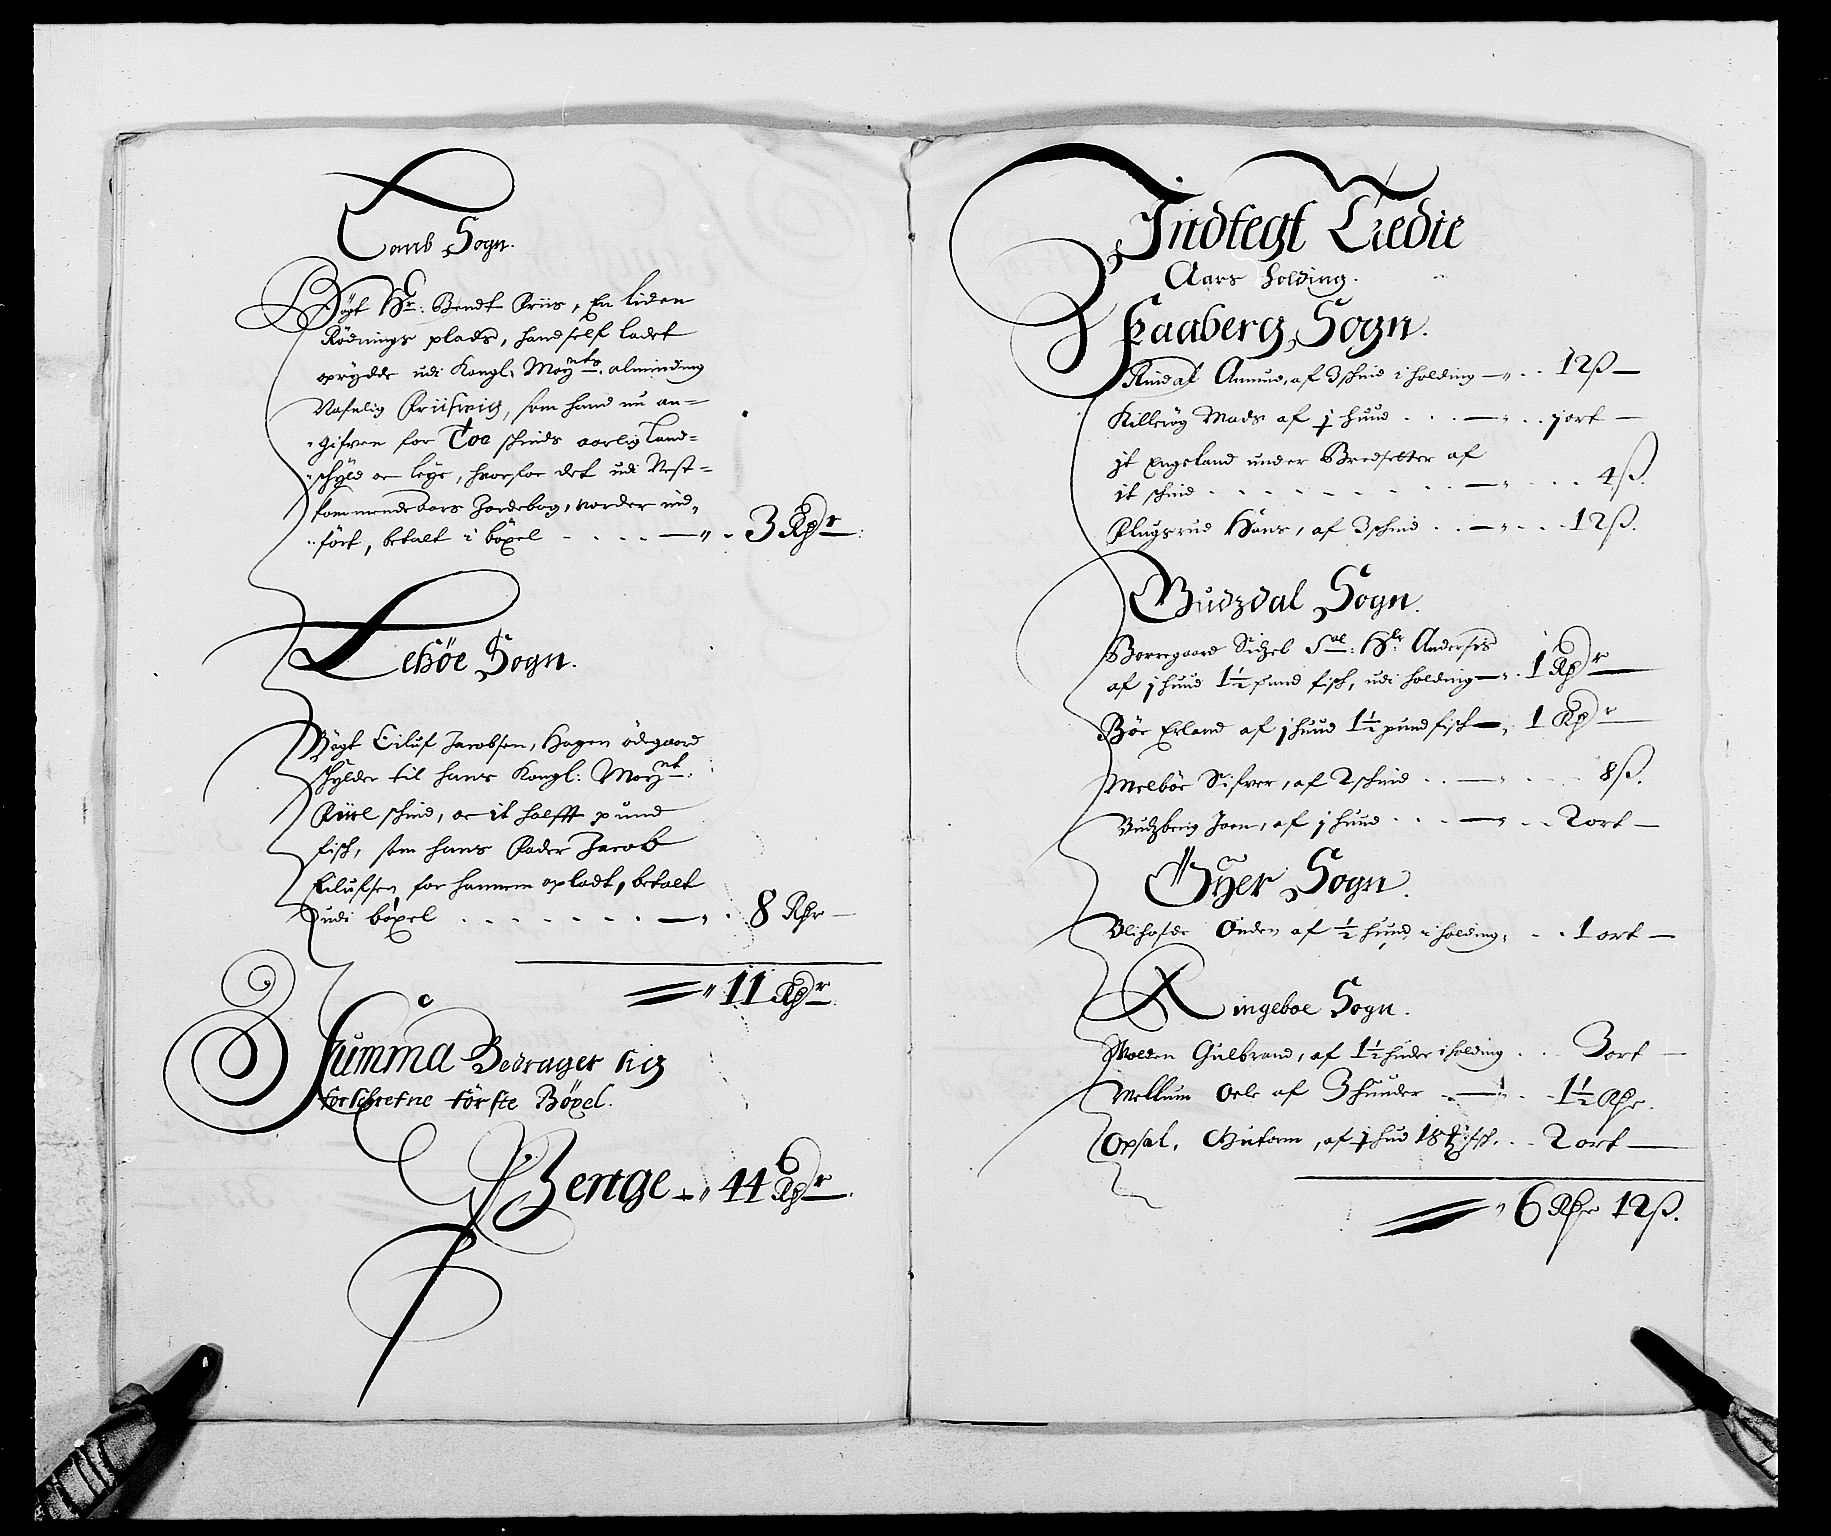 Lomb Sogn.
Bögt Hr. Bendt Friis, En liden
Rödnings plads, hand self ladet
oprydde udi Kongl: Mayts. alminding
Nafnlig Friisvig, som hand nu an-
gifven for Toe schinds aarlig land-
schyld oc leye, hvorfor det udi Nest-
kommende aars Jordebog, vorder ind-
fört, betalt i böxel - - - - 3 Rdr.
Lessöe Sogn.
Bögt Eiluf Jacobsen, Hagen ödegaard
schylder til hans Kongl: Mayt.
Fiire schind, oc it halfft pund
fisch, som hans Fader Jacob
Eilufsen for hannem opladt, betalt
udi böxel . . . . . . . 8 Rdr
11 Rdr.
Summa Bedrager sig
forschrefne förste Böxel.
Penge 44 Rdr.
Indtegt Tredie
Aars holding.
Faaberg Sogn.
Rindal Amund, af 3 schind i holding 12 ß
Killerög Mads af j huud . . . j ort
jt Engeland under Bredsetter af
it schind . . . . . . 4 ß.
Flugsrud Hans, af 3 schind . . . 12 ß.
Gudzdal Sogn.
Borregaard Sidzel Sal: Hr. Andersis
af j huud 1½ pund fisch, udi holding 1 Rdr
Böe Erland af j huud 1½ pund fisch 1 Rdr
Melböe Sifver, af 2 schind . . . 8 ß.
Budzberg Joen, af j huud . . . 2 ort
Öyer Sogn.
Unden af ½ huud i holding, . . 1 ort
Ringeboe Sogn.
Volden Gulbrand, af 1½ huder i holding . . 3 ort
Mellum Oele af 3 huuder . . 1½ Rdr.
Opsal, Guttorm, af j hud 18 fisch . . 2 ort
6 Rdr 12 ß.